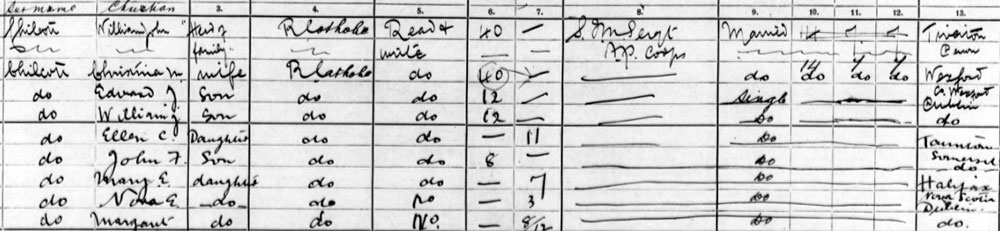 Surname Christian 3. 4. 5. 6. 7. 8. 9. 10. 11. 12. 13.
Chilcott William John Head of R Catholic Read & 40 – S. M Sergt Married 14 7 7 Tiverton
family write — — A.P. Corps Devon
Chilcott Christina M. wife R Catholic do 40 – do 14 do 7 do 7 do Wexford
do Edward J. Son do do 12 – Single Co. Wexford
do William J. Son do do 12 – Do Dublin do
do Ellen C. Daughter do do – 11 Do Taunton
do John F. Son do do 8 – Do Somerset do
do Mary E. daughter do do – 7 Do Halifax
do Nora E. do do No – 3 Do Nova Scotia
do Margaret do do No. – 8/12 Do Dublin. do.